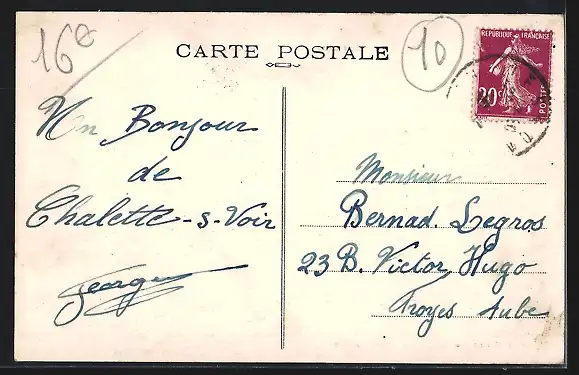 16e
10
CARTE POSTALE
REPUBLIQUE FRANÇAISE
20c
POSTES
Un Bonjour
de
Chalette-s-Voir
Georges
Monsieur
Bernad. Legros
23 B. Victor Hugo
Troyes Aube